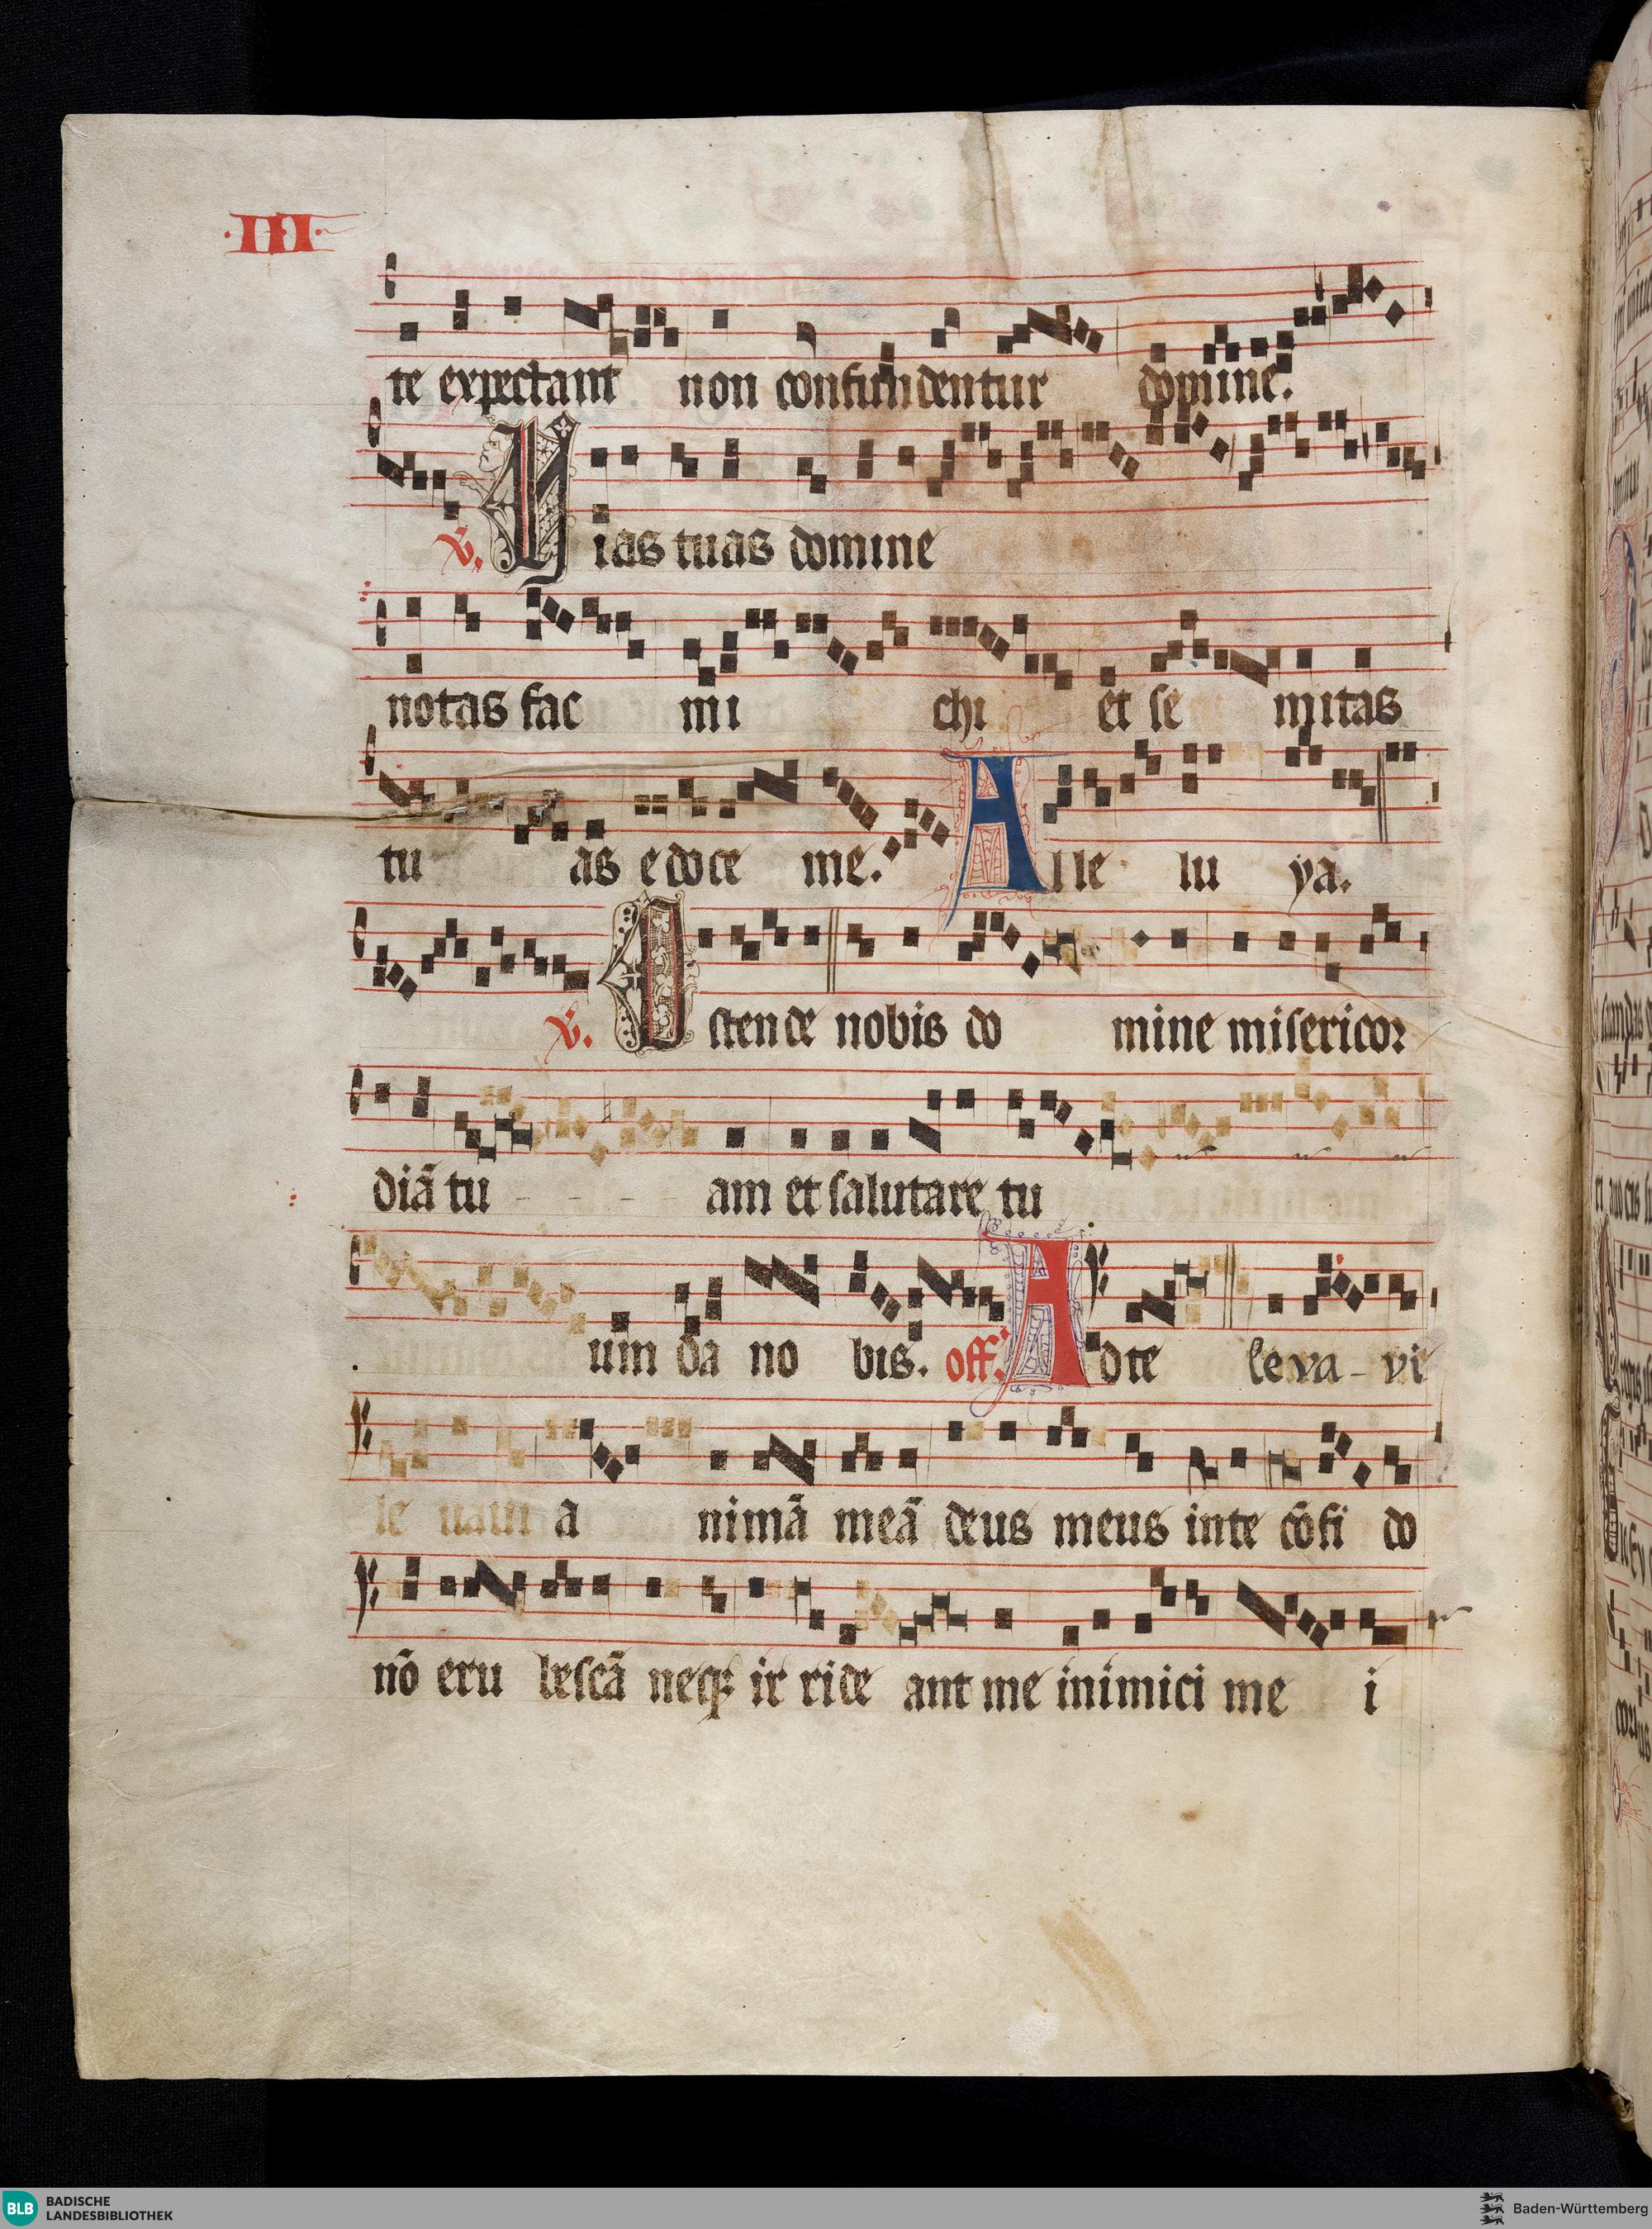 ·III·
te expectant non confundentur domine.
V. Vias tuas domine
notas fac mi chi et se mitas
tu as e doce me. Alle lu ya.
V. Ostende nobis do mine misericor
diā tu - - - - am et salutare tu
um da no bis. off. Ad te leva - vi
le uaui a nimā meā deus meus in te cōfi do
nō eru bescā neq; ir ride ant me inimici me i
BLB BADISCHE
LANDESBIBLIOTHEK
Baden-Württemberg